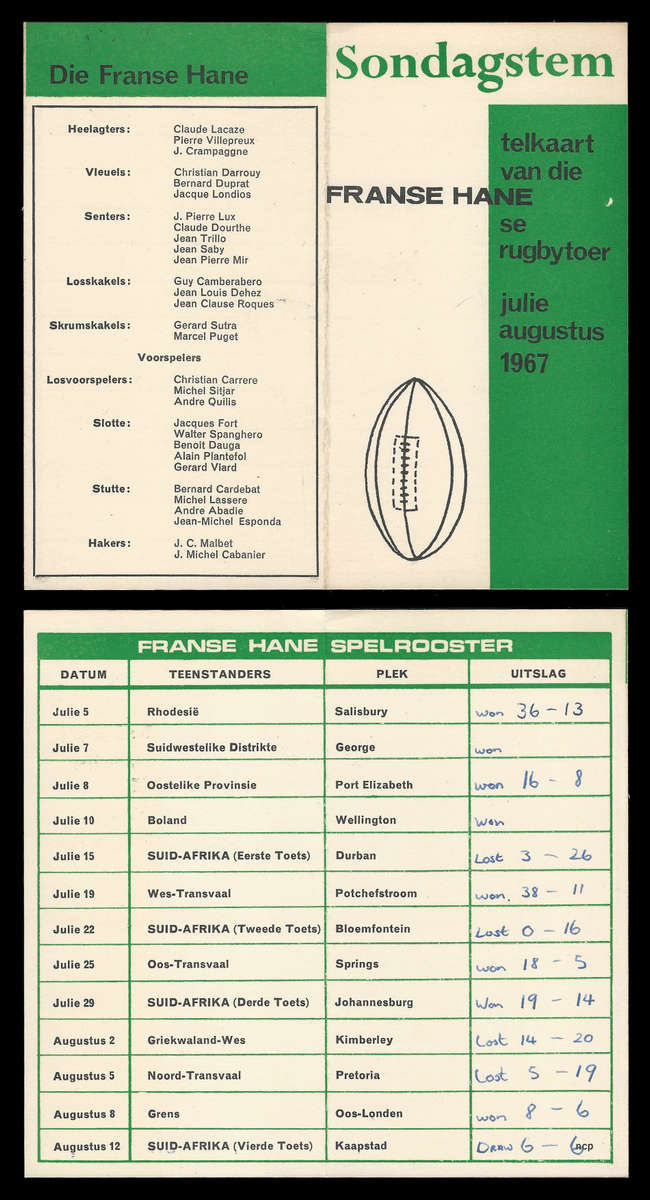 Die Franse Hane
Heelagters: Claude Lacaze
Pierre Villepreux
J. Crampaggne
Vleuels: Christian Darrouy
Bernard Duprat
Jacque Londios
Senters: J. Pierre Lux
Claude Dourthe
Jean Trillo
Jean Saby
Jean Pierre Mir
Losskakels: Guy Camberabero
Jean Louis Dehez
Jean Clause Roques
Skrumskakels: Gerard Sutra
Marcel Puget
Voorspelers
Losvoorspelers: Christian Carrere
Michel Sitjar
Andre Quilis
Slotte: Jacques Fort
Walter Spanghero
Benoit Dauga
Alain Plantefol
Gerard Viard
Stutte: Bernard Cardebat
Michel Lassere
Andre Abadie
Jean-Michel Esponda
Hakers: J. C. Malbet
J. Michel Cabanier
Sondagstem
telkaart
van die
FRANSE HANE
se
rugbytoer
julie
augustus
1967
FRANSE HANE SPELROOSTER
DATUM TEENSTANDERS PLEK UITSLAG
Julie 5 Rhodesië Salisbury won 36 – 13
Julie 7 Suidwestelike Distrikte George won
Julie 8 Oostelike Provinsie Port Elizabeth won 16 – 8
Julie 10 Boland Wellington won
Julie 15 SUID-AFRIKA (Eerste Toets) Durban Lost 3 – 26
Julie 19 Wes-Transvaal Potchefstroom won. 38 – 11
Julie 22 SUID-AFRIKA (Tweede Toets) Bloemfontein Lost 0 – 16
Julie 25 Oos-Transvaal Springs won 18 – 5
Julie 29 SUID-AFRIKA (Derde Toets) Johannesburg Won 19 – 14
Augustus 2 Griekwaland-Wes Kimberley Lost 14 – 20
Augustus 5 Noord-Transvaal Pretoria Lost 5 – 19
Augustus 8 Grens Oos-Londen won 8 – 6
Augustus 12 SUID-AFRIKA (Vierde Toets) Kaapstad DRAW 6 – 6 ncp